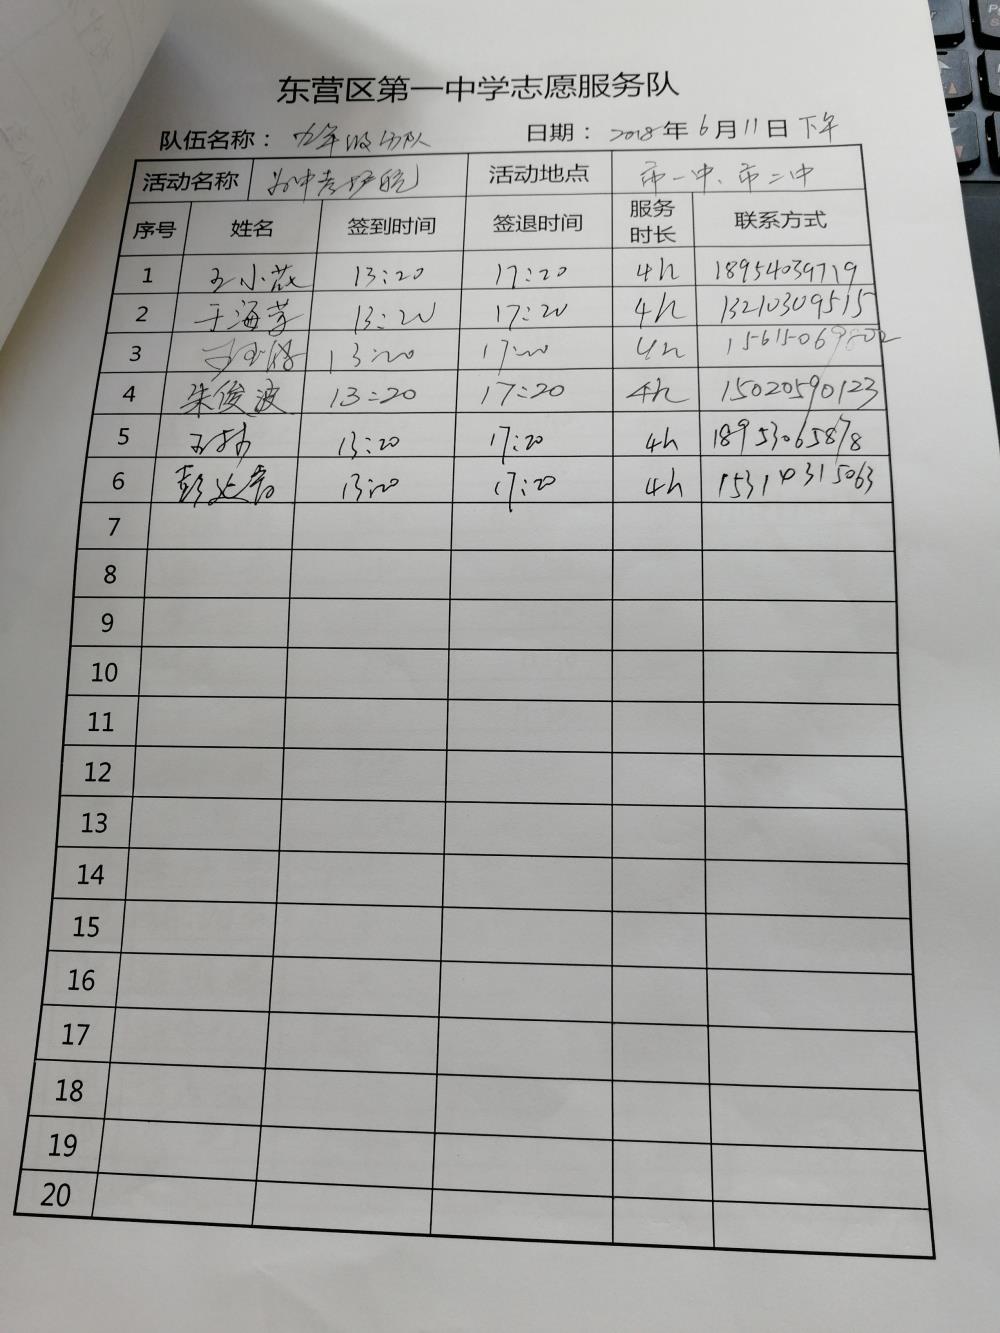 东营区第一中学志愿服务队
队伍名称： 九年级分队 日期： 2018年6月11日下午
活动名称 为中考护航 活动地点 市一中、市二中
序号 姓名 签到时间 签退时间 服务时长 联系方式
1 王小花 13:20 17:20 4h 18954039719
2 于海芹 13:20 17:20 4h 13210309515
3 13:20 17:20 4h 15615069802
4 朱俊波 13:20 17:20 4h 15020590123
5 13:20 17:20 4h 18953065878
6 彭 13:20 17:20 4h
7
8
9
10
11
12
13
14
15
16
17
18
19
20